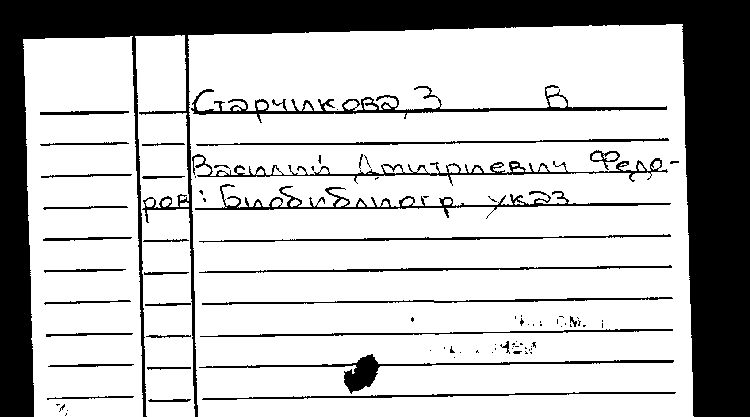 Старчикова, З В
Василий Дмитриевич Федо-
ров: Биобиблиогр. указ.